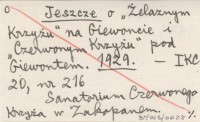 o Jeszcze o „Żelaznym
Krzyżu" na Giewoncie i
„Czerwonym Krzyżu" pod
Giewontem. 1929. — IKC
20, nr 216
Sanatorium Czerwonego
Krzyża w Zakopanem.